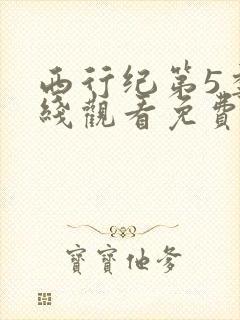 西行纪第5季
綫觀看免費
寶寶他爹